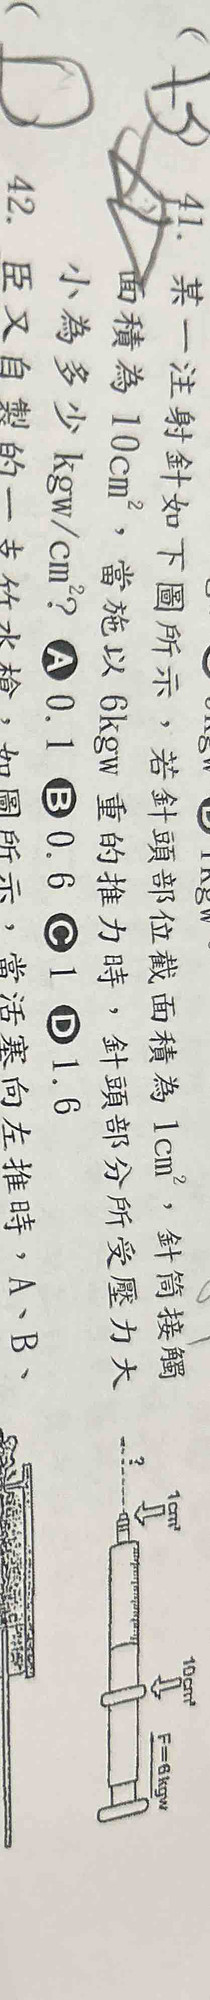 41. 某一注射針如下圖所示，若針頭部位截面積為1cm²，針筒接觸
面積為10cm²，當施以6kgw重的推力時，針頭部分所受壓力大
小為多少kgw/cm²? Ⓐ0.1 Ⓑ0.6 Ⓒ1 Ⓓ1.6
1cm²
10cm²
F=6kgw
?
42. 臣又自製的一支竹水槍，如圖所示，當活塞向左推時，A、B、